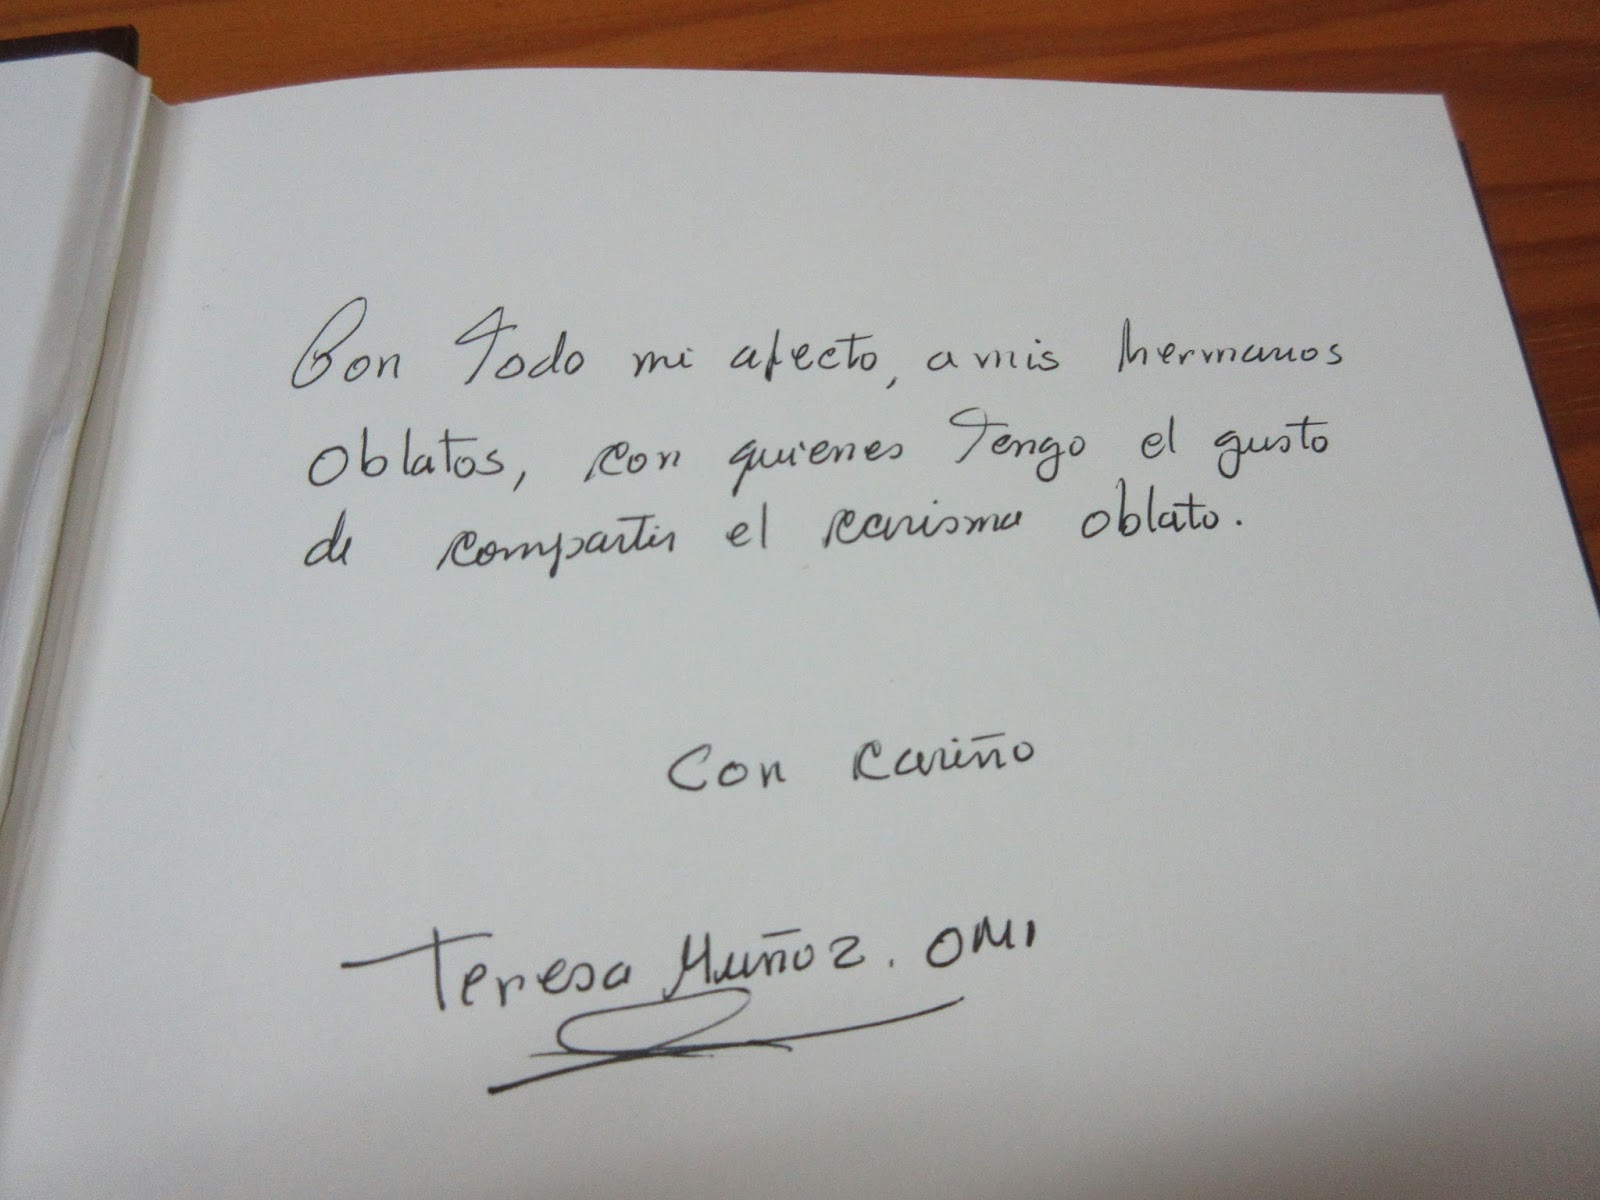 Con todo mi afecto, a mis hermanos
oblatos, con quienes tengo el gusto
de compartir el carisma oblato.
Con cariño
Teresa Muñoz. OMI